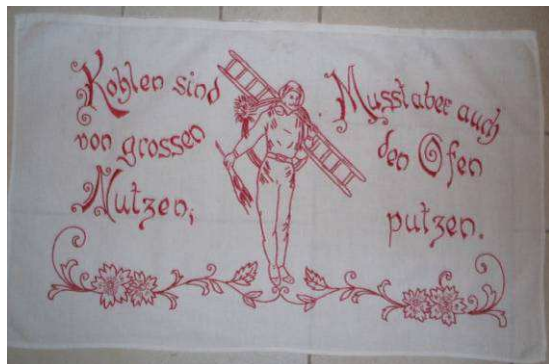 Kohlen sind
von grossen
Nutzen,
Musst aber auch
den Ofen
putzen.